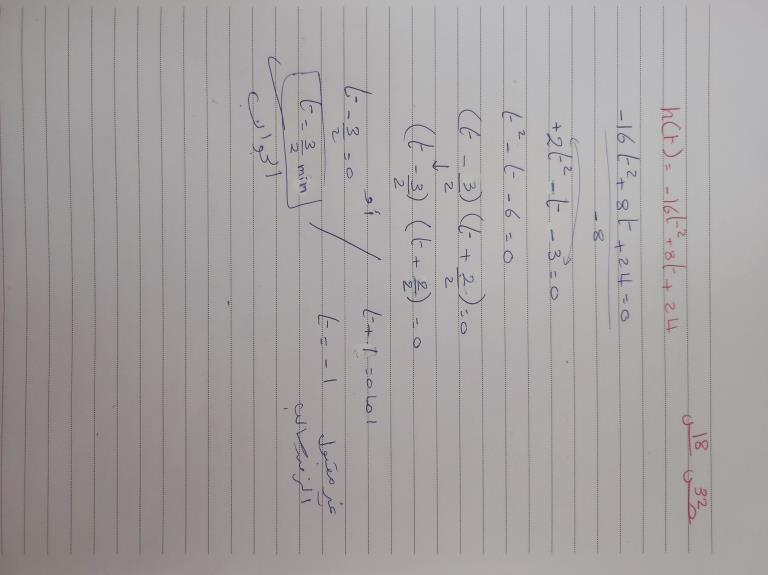 س 18 ص 32
h(t) = -16t² + 8t + 24
-16t² + 8t + 24 = 0
-8
+2t² - t - 3 = 0
t² - t - 6 = 0
(t - 3/2) (t + 2/2) = 0
(t - 3/2) (t + 2/2) = 0
t - 3/2 = 0 أو t + 1 = 0
t = 3/2 min t = -1
الجواب غير مقبول
الزمن سالب